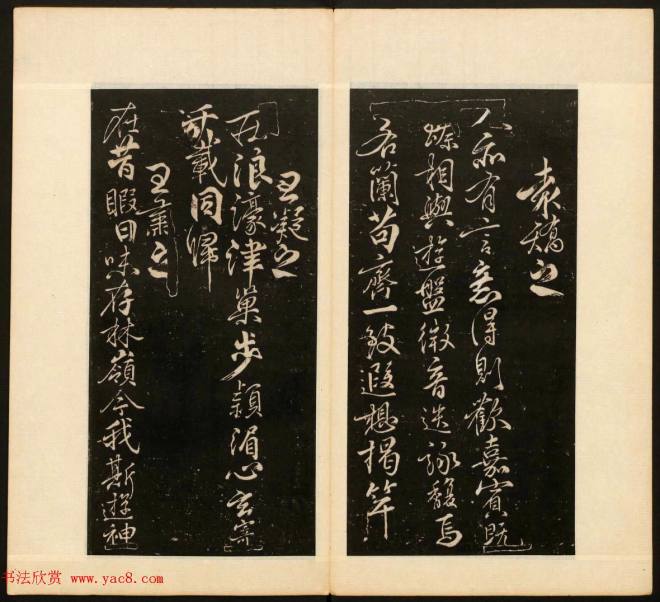 袁矯之
人亦有言意得則歡嘉賓既
臻相與遊盤微音迭詠馥焉
若蘭苟齊一致遐想揭竿
王凝之
莊浪濠津巢步潁湄心玄寄
千載同歸
王肅之
在昔暇日味存林嶺今我斯遊神
书法欣赏 www.yac8.com